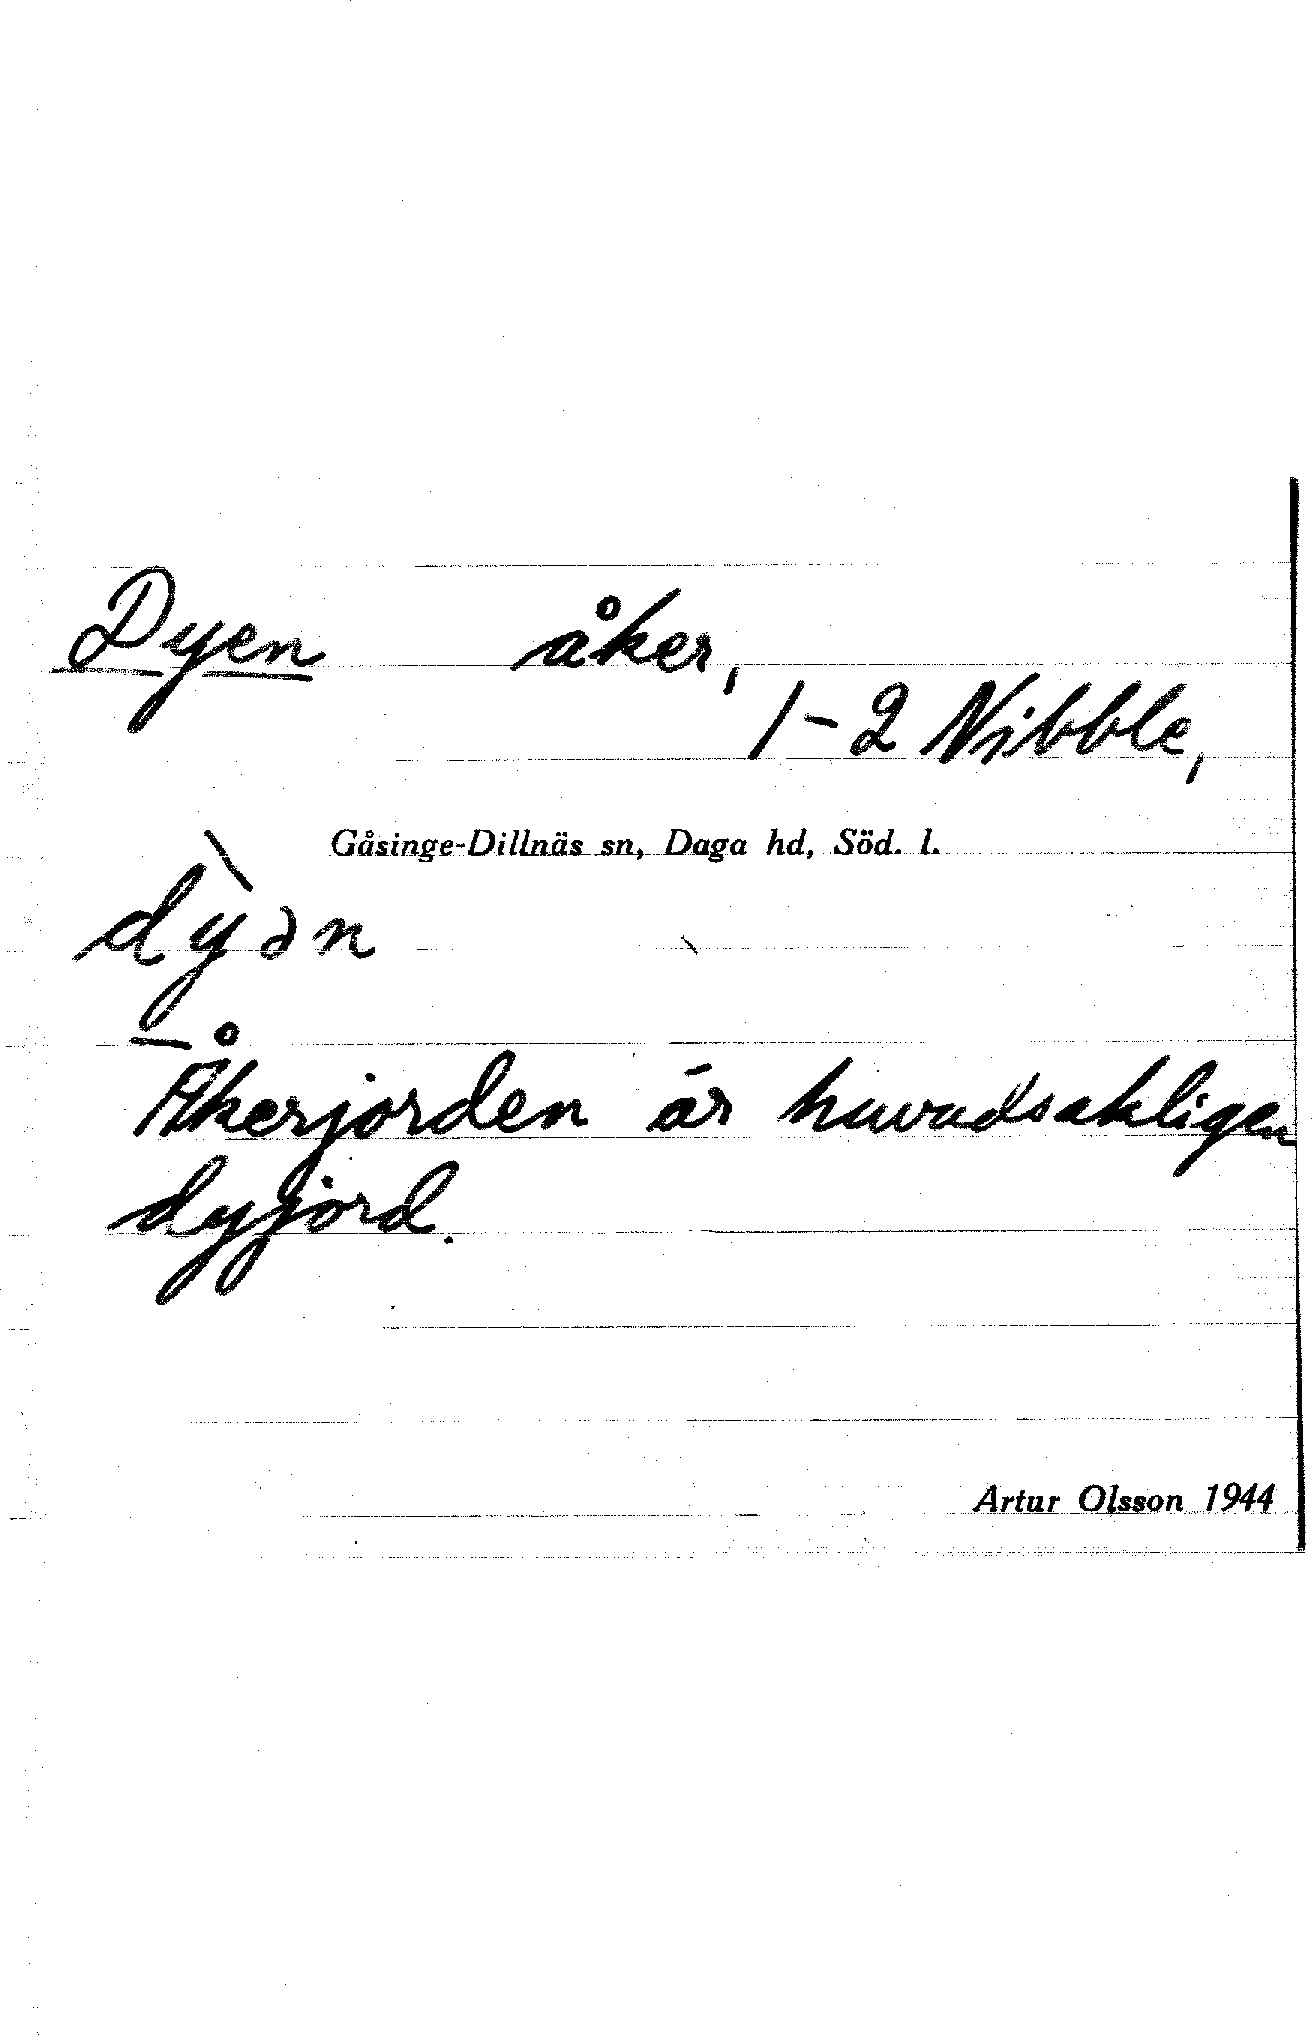 Dyen åker,
1-2 Nibble,
Gåsinge-Dillnäs sn, Daga hd, Söd. l.
dỳən
Åkerjorden är huvudsakligen
dyjord.
Artur Olsson 1944